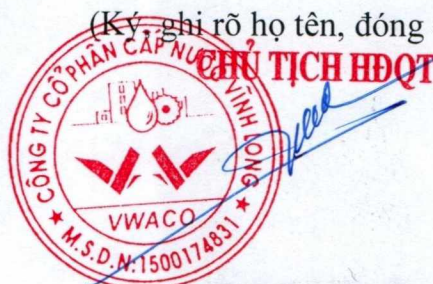 (Ký, ghi rõ họ tên, đóng
CHỦ TỊCH HĐQT
CÔNG TY CỔ PHẦN CẤP NƯỚC VĨNH LONG
VWACO
★ M.S.D.N:1500174831 ★